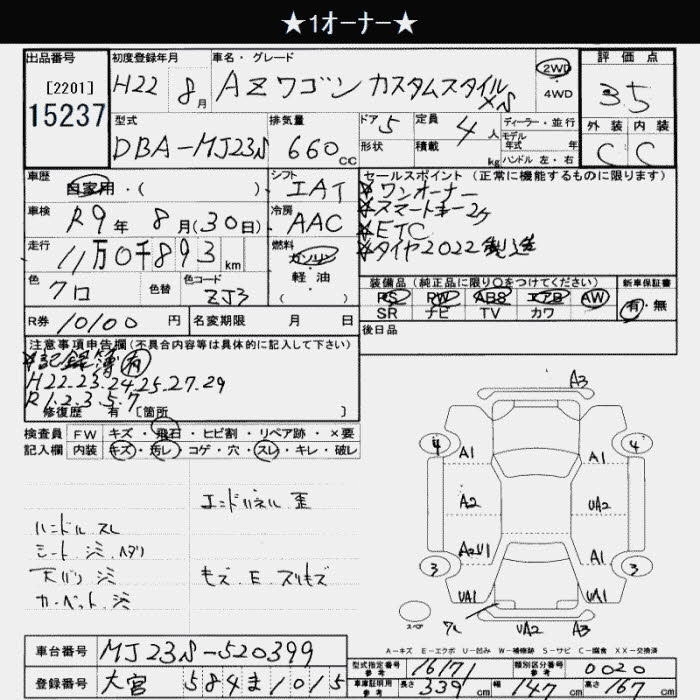 ★1オーナー★
出品番号 初度登録年月 車名・グレード 評価点
[2201]
15237
H22 8月 AZワゴン カスタムスタイル XS
2WD・4WD
3.5
型式 DBA-MJ23S
排気量 660 CC
ドア 5 形状
定員 4人 積載 kg
ディーラー・並行
モデル年式 年
ハンドル 左・右
外装 内装
C C
車歴 自家用・( )
シフト IAT
車検 R9年 8月(30日)
冷房 AAC
走行 11万0千893 km
燃料 ガソリン・軽油 ( )
色 クロ 色替 色コード ZJ3
セールスポイント (正常に機能するものに限ります)
★ワンオーナー
★スマートキー2ケ
★ETC
★タイヤ2022製造
装備品 (純正品に限り○をつけてください) 新車保証書
PS PW ABS エアB AW 有・無
SR ナビ TV カワ
R券 10100円 名変期限 月 日
後日品
注意事項申告欄 (不具合内容等は具体的に記入して下さい)
★記録簿 有
H22.23.24.25.27.29
R1.2.3.5.7
修復歴 有 [箇所 ]
検査員 FW キズ・飛石・ヒビ割・リペア跡・×要
記入欄 内装 キズ・汚レ・コゲ・穴・スレ・キレ・破レ
エンドパネル 歪
ハンドル スレ
シート シミ ヘタリ
天バリ シミ
モズ.E.スリキズ
カーペット.シミ
A3
4 A1 A1 4
A2 UA2
A2U1 A1
3 3
UA1 UA1
スペア UA2 A3
A-キズ E-エクボ U-凹み W-補修跡 S-サビ C-腐食 XX-交換済
車台番号 MJ23S-520399
登録番号 大宮 584ま1015
型式指定番号 参考 16171 類別区分番号 参考 0020
車車証明用 参考 長さ 339cm 幅 147cm 高さ 167cm